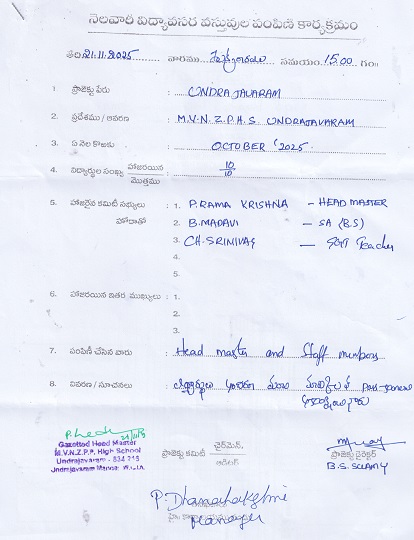 నెలవారీ విద్యావసర వస్తువుల పంపిణీ కార్యక్రమం
తేది: 21.11.2025 వారము శుక్రవారము సమయం: 15.00 గం॥
1. ప్రాజెక్టు పేరు : UNDRAJAVARAM
2. ప్రదేశము / ఆవరణ : M.V.N.Z.P.H.S. UNDRAJAVARAM
3. ఏ నెల కొఱకు : OCTOBER '2025.
4. విద్యార్థుల సంఖ్య హాజరయిన / మొత్తము : 10/10
5. హాజరైన కమిటీ సభ్యులు : 1. P. RAMA KRISHNA - HEAD MASTER
హోదాతో 2. B. MADAVI - SA (B.S)
3. CH. SRINIVAS -
4.
5.
6. హాజరయిన ఇతర ముఖ్యులు : 1.
2.
3.
7. పంపిణీ చేసిన వారు : Head master and Staff members
8. వివరణ / సూచనలు :
Gazetted Head Master
M.V.N.Z.P.P. High School
Undrajavaram - 534 216
Undrajavaram Mandal, W.G.Dt.
ప్రాజెక్టు కమిటీ ఛైర్మెన్, / ఆడిటర్
ప్రాజెక్టు డైరెక్టర్
B.S. SWAMY
P. Dhanalakshmi
Manager